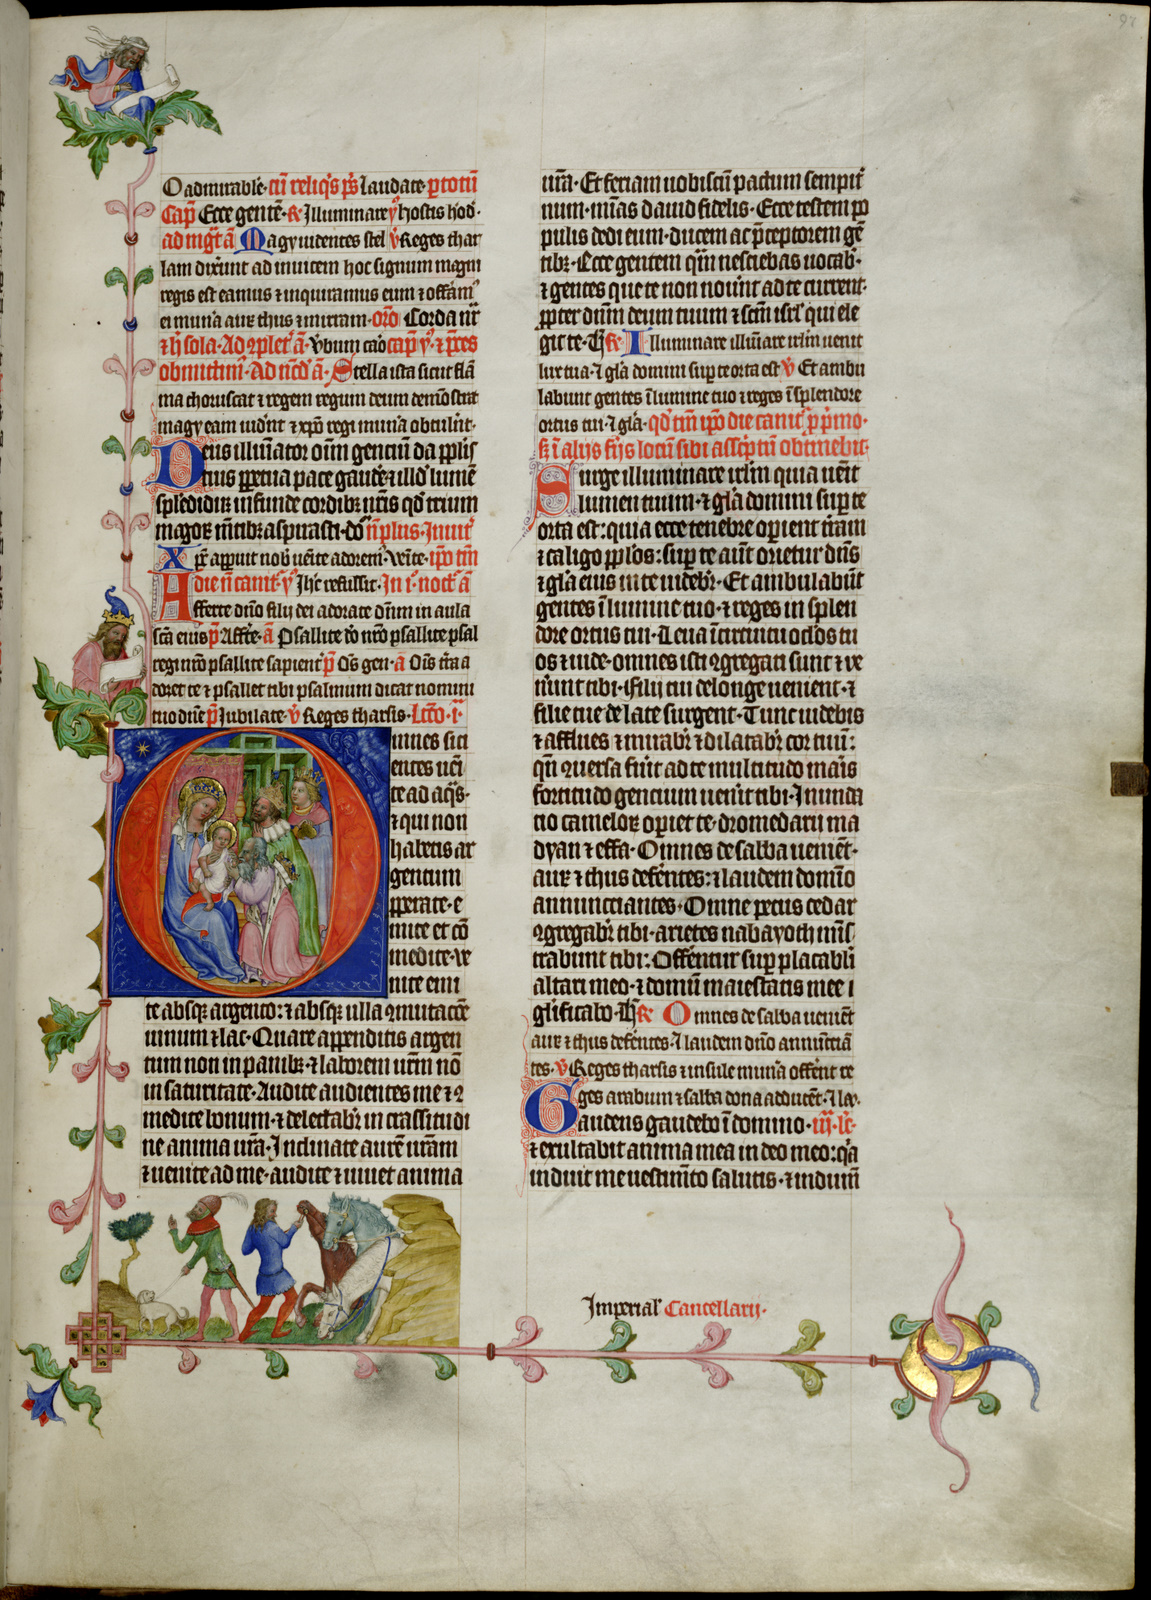 97
O admirabile· cū reliq̄s p̄s laudate· p totū
cap̄ Ecce gente· ℟ Illuminare ℣ hostis hod·
ad mḡt ā Magy uidentes stel ℣ Reges thar
lam dixerunt ad inuicem hoc signum magni
regis est eamus ⁊ inquiramus eum ⁊ offam̄
ei munera aurꝫ thus ⁊ mirram· or̄o Corda nr̄
⁊ h̄ sola· Ad ꝯplet̄ ā· Vbum caō cap̄ ℣ ⁊ p̄ces
obmittūt̄· Ad nc̄d ā· Stella ista sicut flā
ma choruscat ⁊ regem regum deum demōstrat
magy eam uider̄t ⁊ xp̄o regi muner̄a obtuler̄t·
Deus illuīator oīm genciū da pplis
tuis ppetua pace gaude ⁊ illd̄ lumē
splēdidū infunde cordibꝫ nr̄is qd̄ trium
magoꝝ mētibꝫ aspirasti· do n̄ plus· Inuit̄
Xp̄c apparuit nob̄ uēite adorem̄· Vēite· ip̄o tm̄
die n̄ canit̄· ℣ Ihc̄ refulsit· In i· noct̄ ā
Afferte dn̄o filij dei adorate dn̄m in aula
sc̄a eius p̄ Affr̄te· ā Psallite do nr̄o psallite psal
regi nr̄o psallite sapient̄ p̄ Om̄s gen· ā Om̄s t̄ra a
doret te ⁊ psallet tibi psalmum dicat nomini
tuo dn̄e p̄ Jubilate· ℣ Reges tharsis· Lcc̄o· i·
Omnes sici
entes uēi
te ad aq̄s·
⁊ qui non
habetis ar
gentum
pperate· e
mite et cō
medite· ve
nite emi
te absqꝫ argento: ⁊ absqꝫ ulla ꝯmutac̄oē
uinum ⁊ lac· Quare appenditis argen
tum non in panibꝫ· ⁊ laborem ur̄m nō
in saturitate· Audite audientes me ⁊ ꝯ
medite bonum· ⁊ delectabr̄ in crassitudi
ne anima ur̄a· Inclinate aurē ur̄am
⁊ uenite ad me· audite ⁊ uiuet anima
ur̄a· Et feriam uobiscū pactum sempit̄
num· mīas dauid fideles· Ecce testem po
pulis dedi eum· ducem ac p̄ceptorem gē
tibꝫ· Ecce gentem qm̄ nesciebas uocab·
⁊ gentes que te non nouer̄t ad te current·
ppter dn̄m deum tuum ⁊ scm̄ isrl̄ qui ele
git te· Th̄ ℟ Illuminare illuīare irlm̄ uenit
lux tua· ⁊ gl̄a domini sup te orta est ℣ Et ambu
labunt gentes ī lumine tuo ⁊ reges ī splendore
ortus tui· ⁊ gl̄a· qd̄ tm̄ ip̄o die canit̄ p p̄mo·
sꝫ ī alijs fr̄ijs locū sibi asscptū obtinebit·
Surge illuminare irlm̄ quia uēit
lumen tuum· ⁊ gl̄a domini sup te
orta est: quia ecce tenebre opient t̄ram
⁊ caligo pplos: sup te aūt orietur dn̄s
⁊ gl̄a eius in te uidebr̄· Et ambulabūt
gentes ī lumine tuo· ⁊ reges in splen
dore ortus tui· Leua ī circuitu oclōs tu
os ⁊ uide· omnes isti ꝯgregati sunt ⁊ ve
nerunt tibi· Filij tui de longe uenient· ⁊
filie tue de late surgent· Tunc uidebis
⁊ afflues ⁊ mirabr̄ ⁊ dilatabr̄ cor tuū:
qn̄ ꝯuersa fuer̄it ad te multitudo maris
fortitudo gencium uener̄it tibi· Inunda
tio cameloꝝ opiet te· dromedarij ma
dyan ⁊ effa· Omnes de saba uenient·
aurꝫ ⁊ thus deferentes: ⁊ laudem domīo
annuncciantes· Omne pecus cedar
ꝯgregabr̄ tibi· arietes nabayoth minis
trabunt tibi: Offerentur sup placabili
altari meo· ⁊ domū maiestatis mee
glificabo· Th̄ ℟ Omnes de saba uenient
aurꝫ ⁊ thus deferentes· ⁊ laudem dn̄o annūciā
tes· ℣ Reges tharsis ⁊ insule munera offerent re
ges arabum ⁊ saba dona adducent· ⁊ la·
Gaudens gaudebo ī domino· iij· lc̄·
⁊ exultabit anima mea in deo meo: qr̄a
induit me uestimēto salutis· ⁊ indum̄
Imperial̄ Cancellarij·